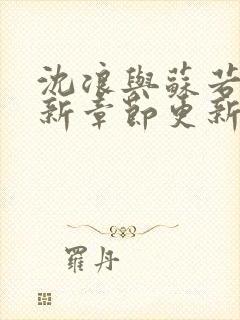 沈浪與蘇若
新章節更新
羅丹